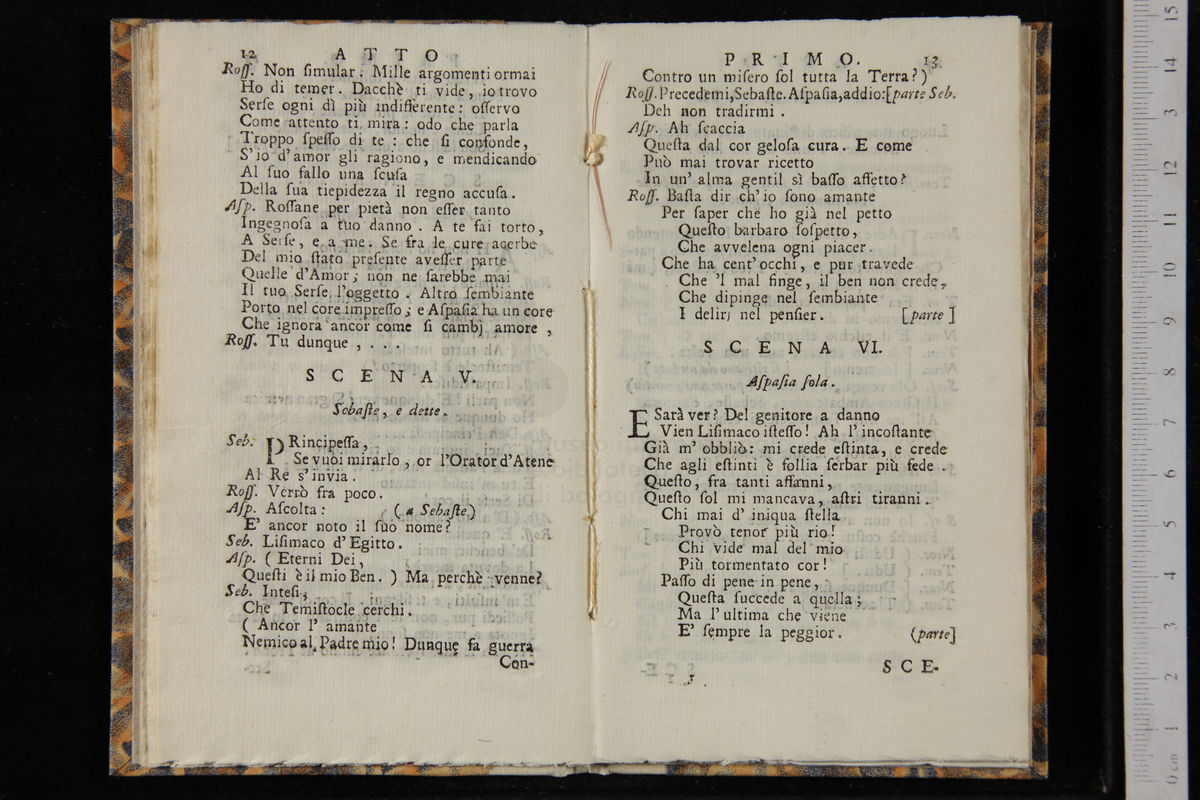 12 ATTO
Roſſ. Non ſimular. Mille argomenti ormai
Ho di temer. Dacchè ti vide, io trovo
Serſe ogni dì più indifferente: oſſervo
Come attento ti mira: odo che parla
Troppo ſpeſſo di te: che ſi confonde,
S'io d'amor gli ragiono, e mendicando
Al ſuo fallo una ſcuſa
Della ſua tiepidezza il regno accuſa.
Aſp. Roſſane per pietà non eſſer tanto
Ingegnoſa a tuo danno. A te fai torto,
A Serſe, e a me. Se fra le cure acerbe
Del mio ſtato preſente aveſſer parte
Quelle d'Amor; non ne ſarebbe mai
Il tuo Serſe l'oggetto. Altro ſembiante
Porto nel core impreſſo; e Aſpaſia ha un core
Che ignora ancor come ſi cambj amore,
Roſſ. Tu dunque, ...
SCENA V.
Sebaſte, e dette.
Seb. PRincipeſſa,
Se vuoi mirarlo, or l'Orator d'Atene
Al Re s'invia.
Roſſ. Verrò fra poco.
Aſp. Aſcolta: (a Sebaſte)
E' ancor noto il ſuo nome?
Seb. Liſimaco d'Egitto.
Aſp. (Eterni Dei,
Queſti è il mio Ben.) Ma perchè venne?
Seb. Inteſi,
Che Temiſtocle cerchi.
(Ancor l'amante
Nemico al Padre mio! Dunque fa guerra
Con-
PRIMO. 13
Contro un miſero ſol tutta la Terra?)
Roſſ. Precedemi, Sebaſte. Aſpaſia, addio: [parte Seb.
Deh non tradirmi.
Aſp. Ah ſcaccia
Queſta dal cor geloſa cura. E come
Può mai trovar ricetto
In un' alma gentil sì baſſo affetto?
Roſſ. Baſta dir ch'io ſono amante
Per ſaper che ho già nel petto
Queſto barbaro ſoſpetto,
Che avvelena ogni piacer.
Che ha cent' occhi, e pur travede
Che 'l mal finge, il ben non crede,
Che dipinge nel ſembiante
I delirj nel penſier. [parte]
SCENA VI.
Aſpaſia ſola.
E Sarà ver? Del genitore a danno
Vien Liſimaco iſteſſo! Ah l'incoſtante
Già m'obbliò: mi crede eſtinta, e crede
Che agli eſtinti è follia ſerbar più fede.
Queſto, fra tanti affanni,
Queſto ſol mi mancava, aſtri tiranni.
Chi mai d'iniqua ſtella
Provò tenor più rio!
Chi vide mai del mio
Più tormentato cor!
Paſſo di pene in pene,
Queſta ſuccede a quella;
Ma l'ultima che viene
E' ſempre la peggior. (parte]
SCE-